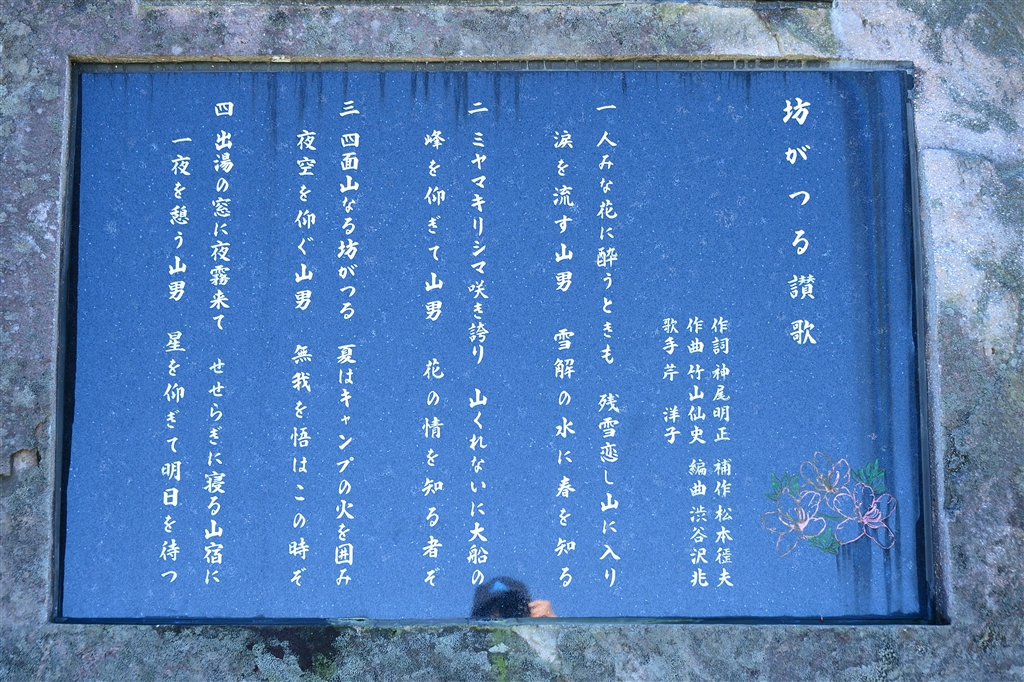 坊がつる讃歌
作詞 神尾明正 補作 松本征夫
作曲 竹山仙史 編曲 渋谷沢兆
歌手 芹 洋子
一 人みな花に酔うときも 残雪恋し山に入り
涙を流す山男 雪解の水に春を知る
二 ミヤマキリシマ咲き誇り 山くれないに大船の
峰を仰ぎて山男 花の情を知る者ぞ
三 四面山なる坊がつる 夏はキャンプの火を囲み
夜空を仰ぐ山男 無我を悟はこの時ぞ
四 出湯の窓に夜霧来て せせらぎに寝る山宿に
一夜を憩う山男 星を仰ぎて明日を待つ